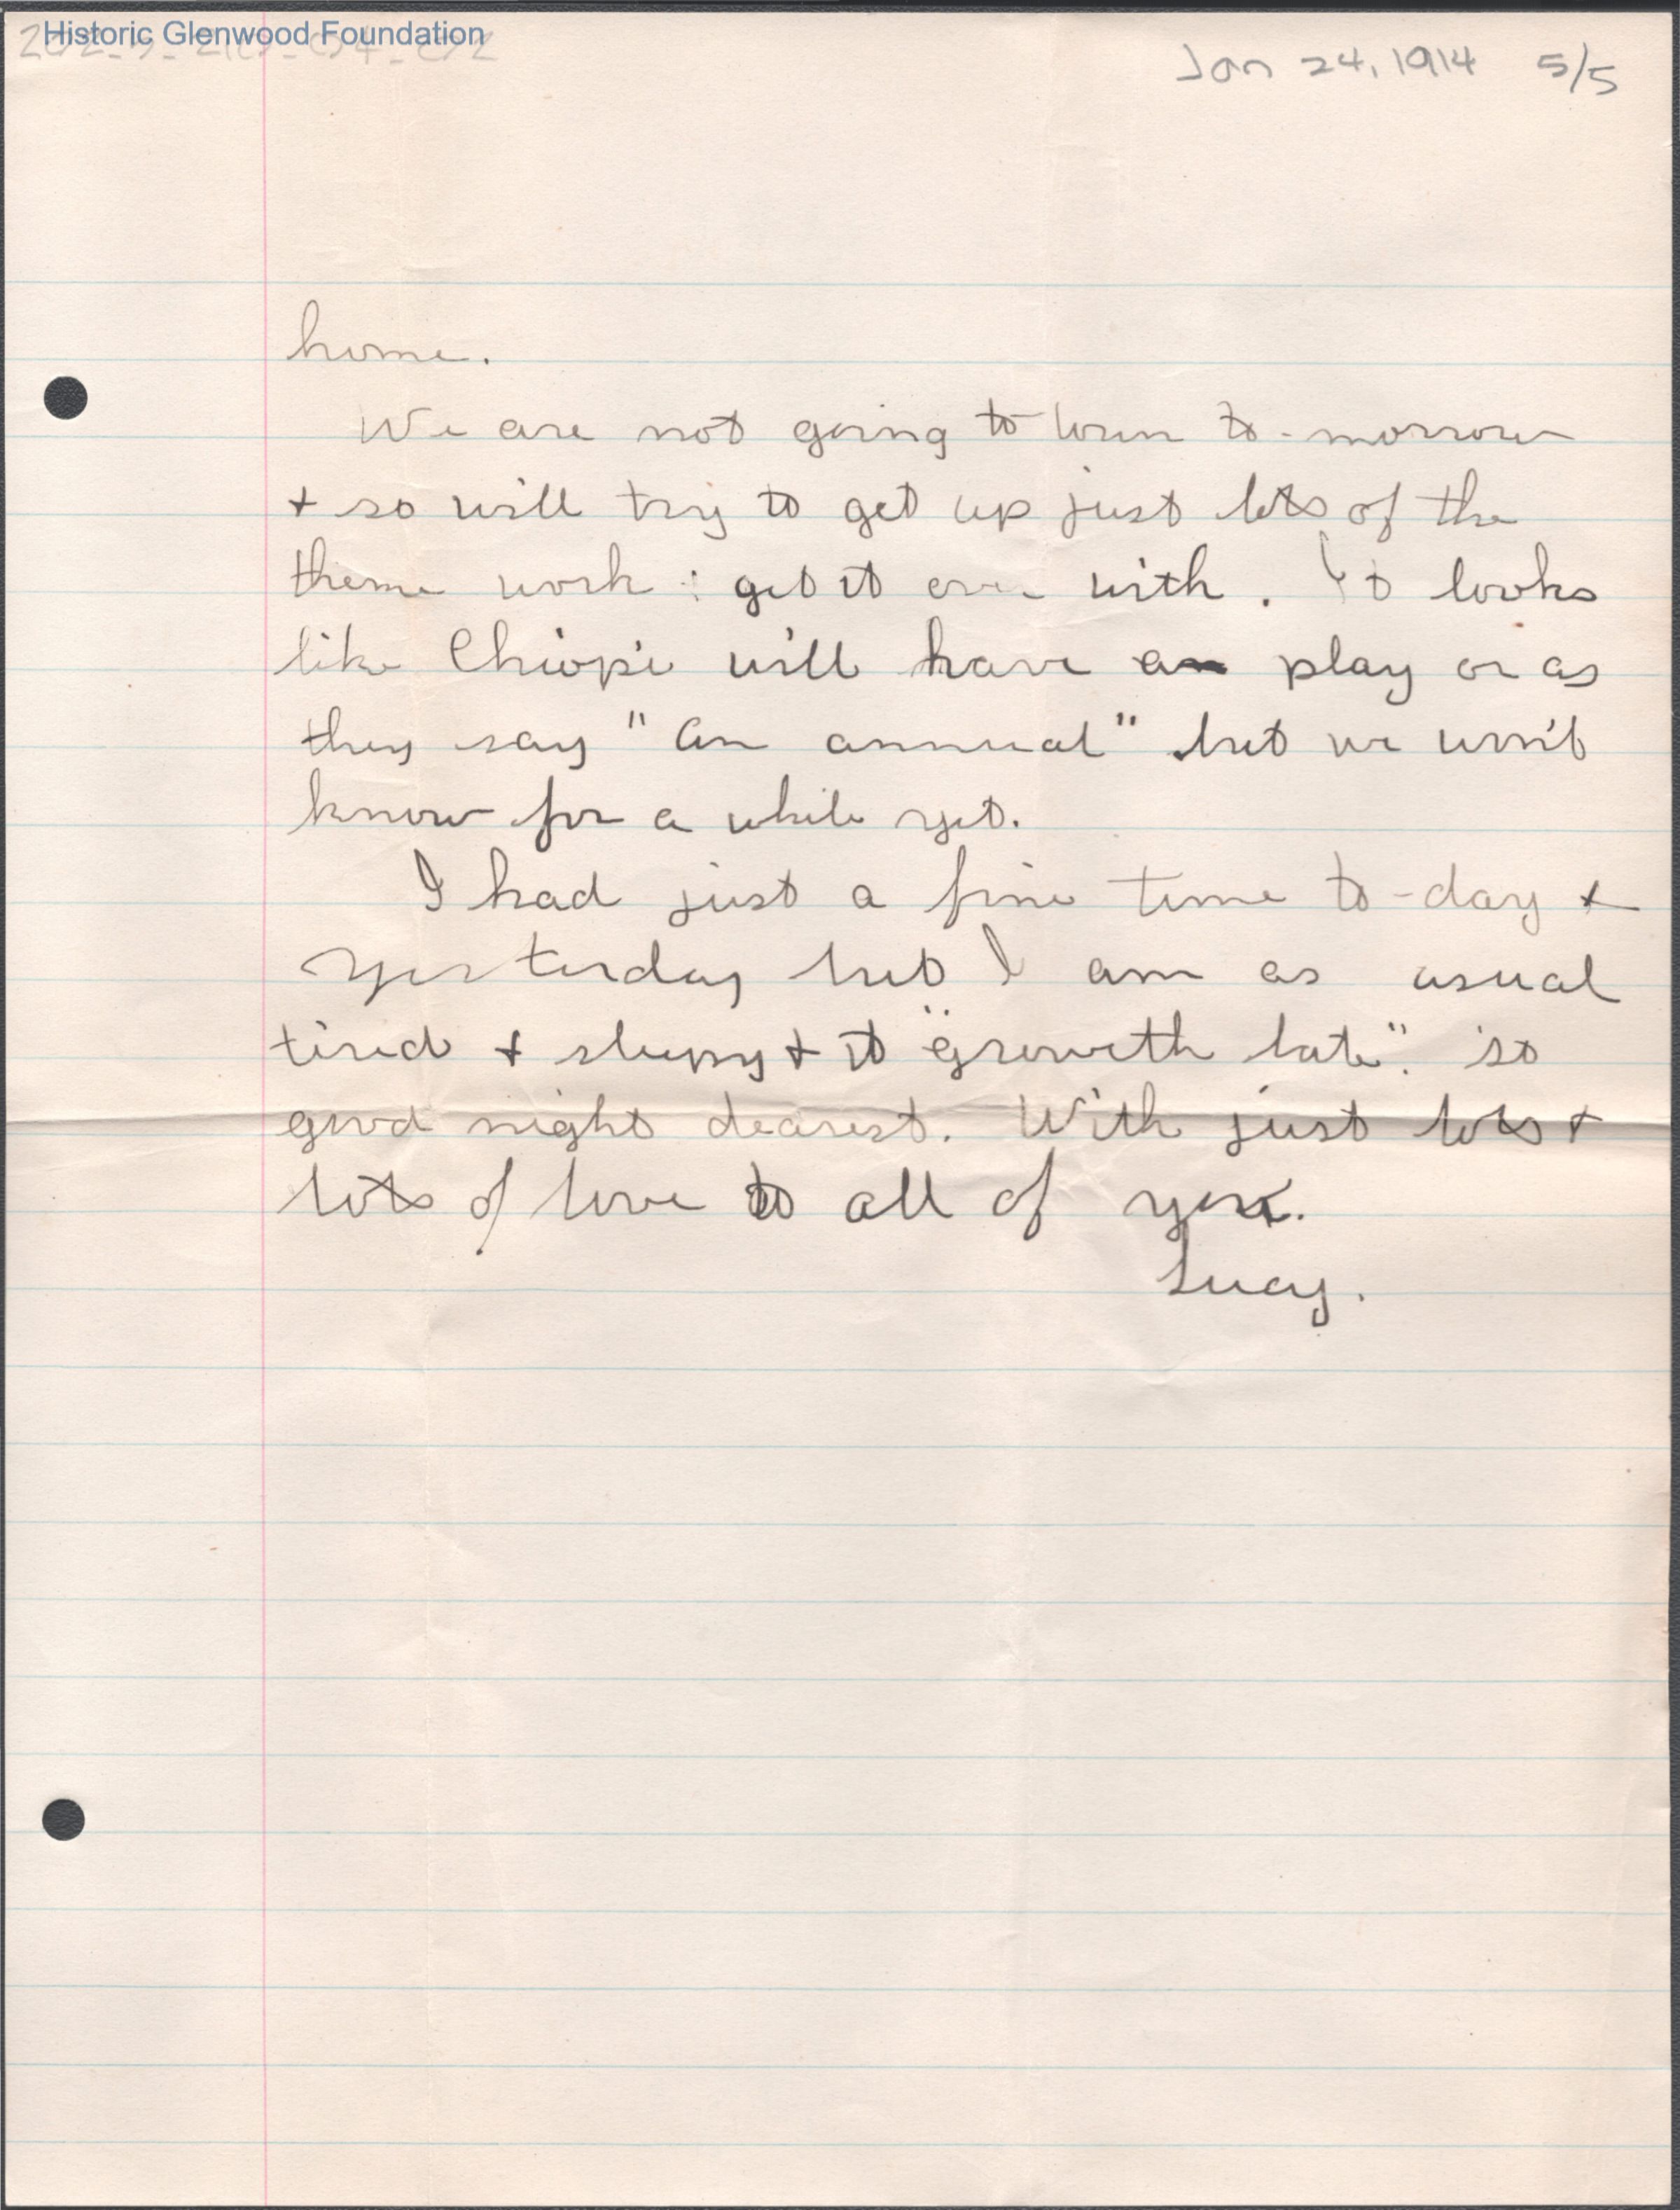 Historic Glenwood Foundation
Jan 24, 1914 5/5
home.
We are not going to town to-morrow
+ so will try to get up just lots of the
theme work : get it over with. It looks
like will have a play or as
they say "An annual" but we won't
know for a while yet.
I had just a fine time to-day +
yesterday but I am as usual
tired + sleepy + it "groweth late". so
good night dearest. With just lots +
lots of love to all of you.
Lucy.